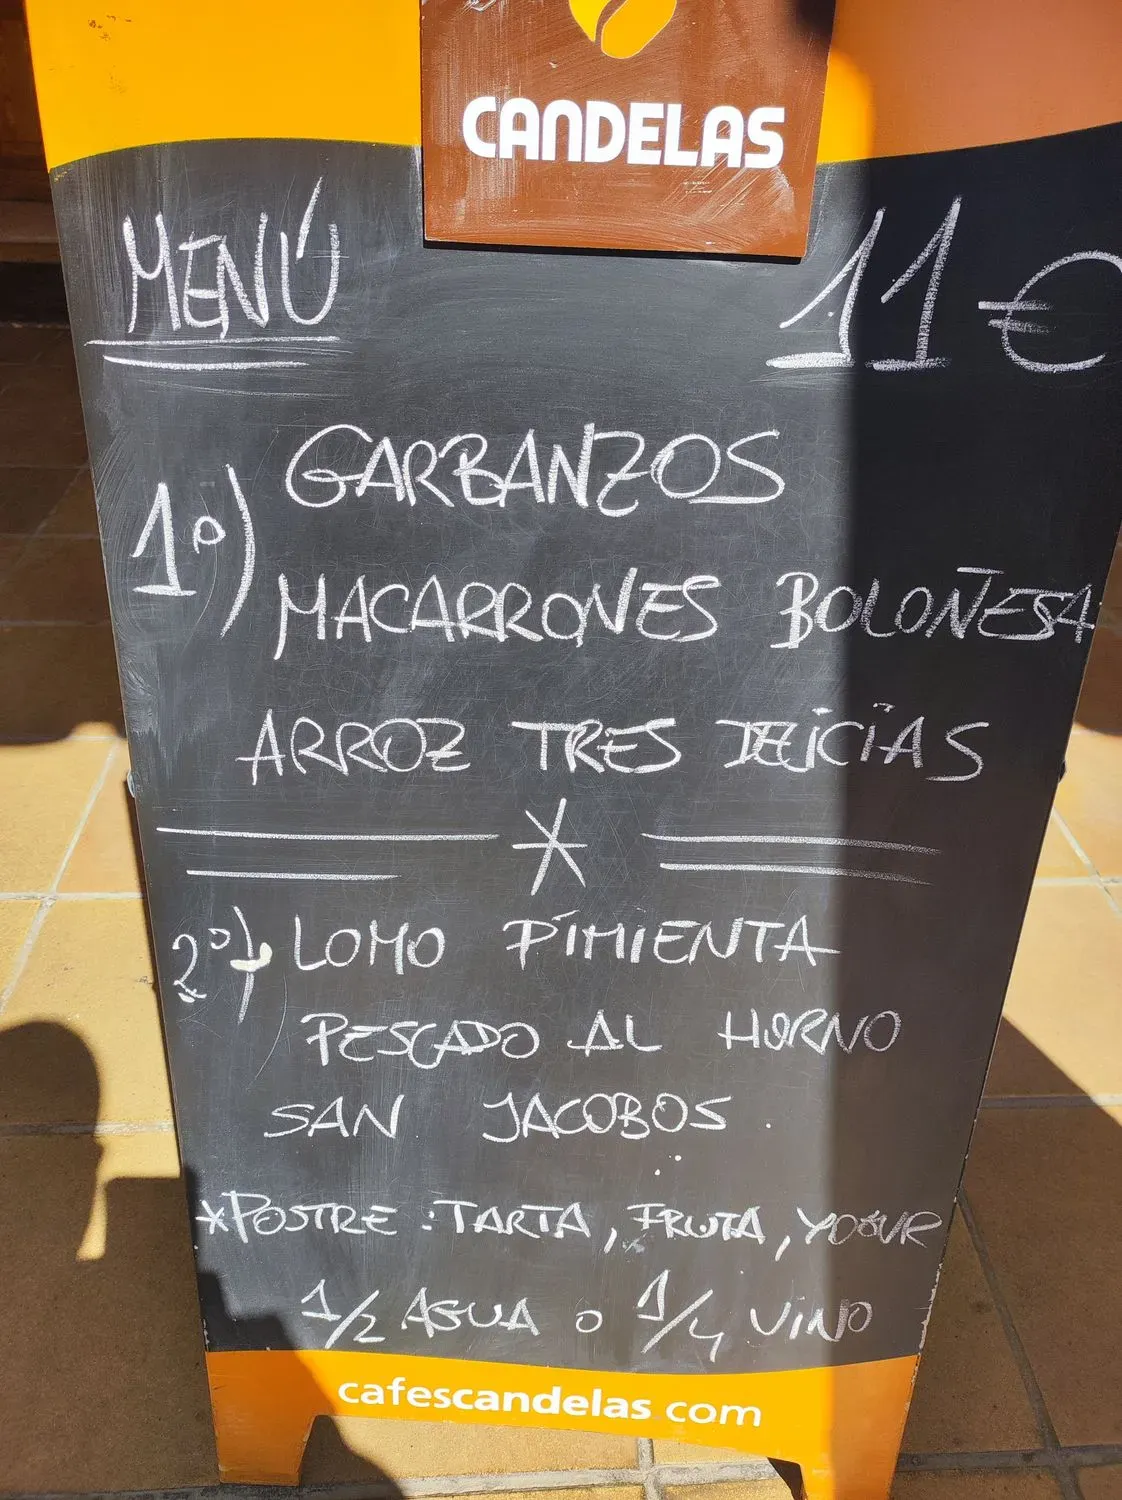 CANDELAS
MENÚ 11€
GARBANZOS
1º)
MACARRONES BOLOÑESA
ARROZ TRES DELICIAS
2º) LOMO PIMIENTA
PESCADO AL HORNO
SAN JACOBOS.
*POSTRE: TARTA, FRUTA, YOGUR
1/2 AGUA o 1/4 VINO
cafescandelas com